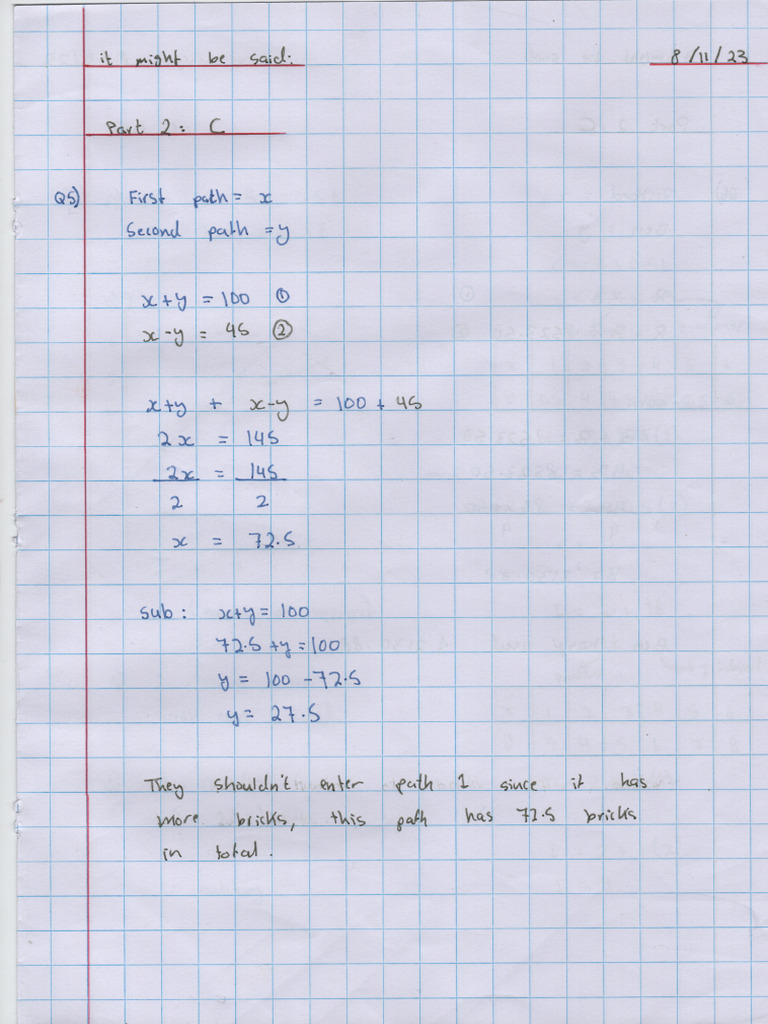 it might be said:
8/11/23
Part 2: C
Q5) First path = x
Second path = y
x+y = 100 ①
x-y = 45 ②
x+y + x-y = 100 + 45
2x = 145
2x = 145
2 2
x = 72.5
sub: x+y = 100
72.5 + y = 100
y = 100 - 72.5
y = 27.5
They shouldn't enter path 1 since it has
more bricks, this path has 72.5 bricks
in total.